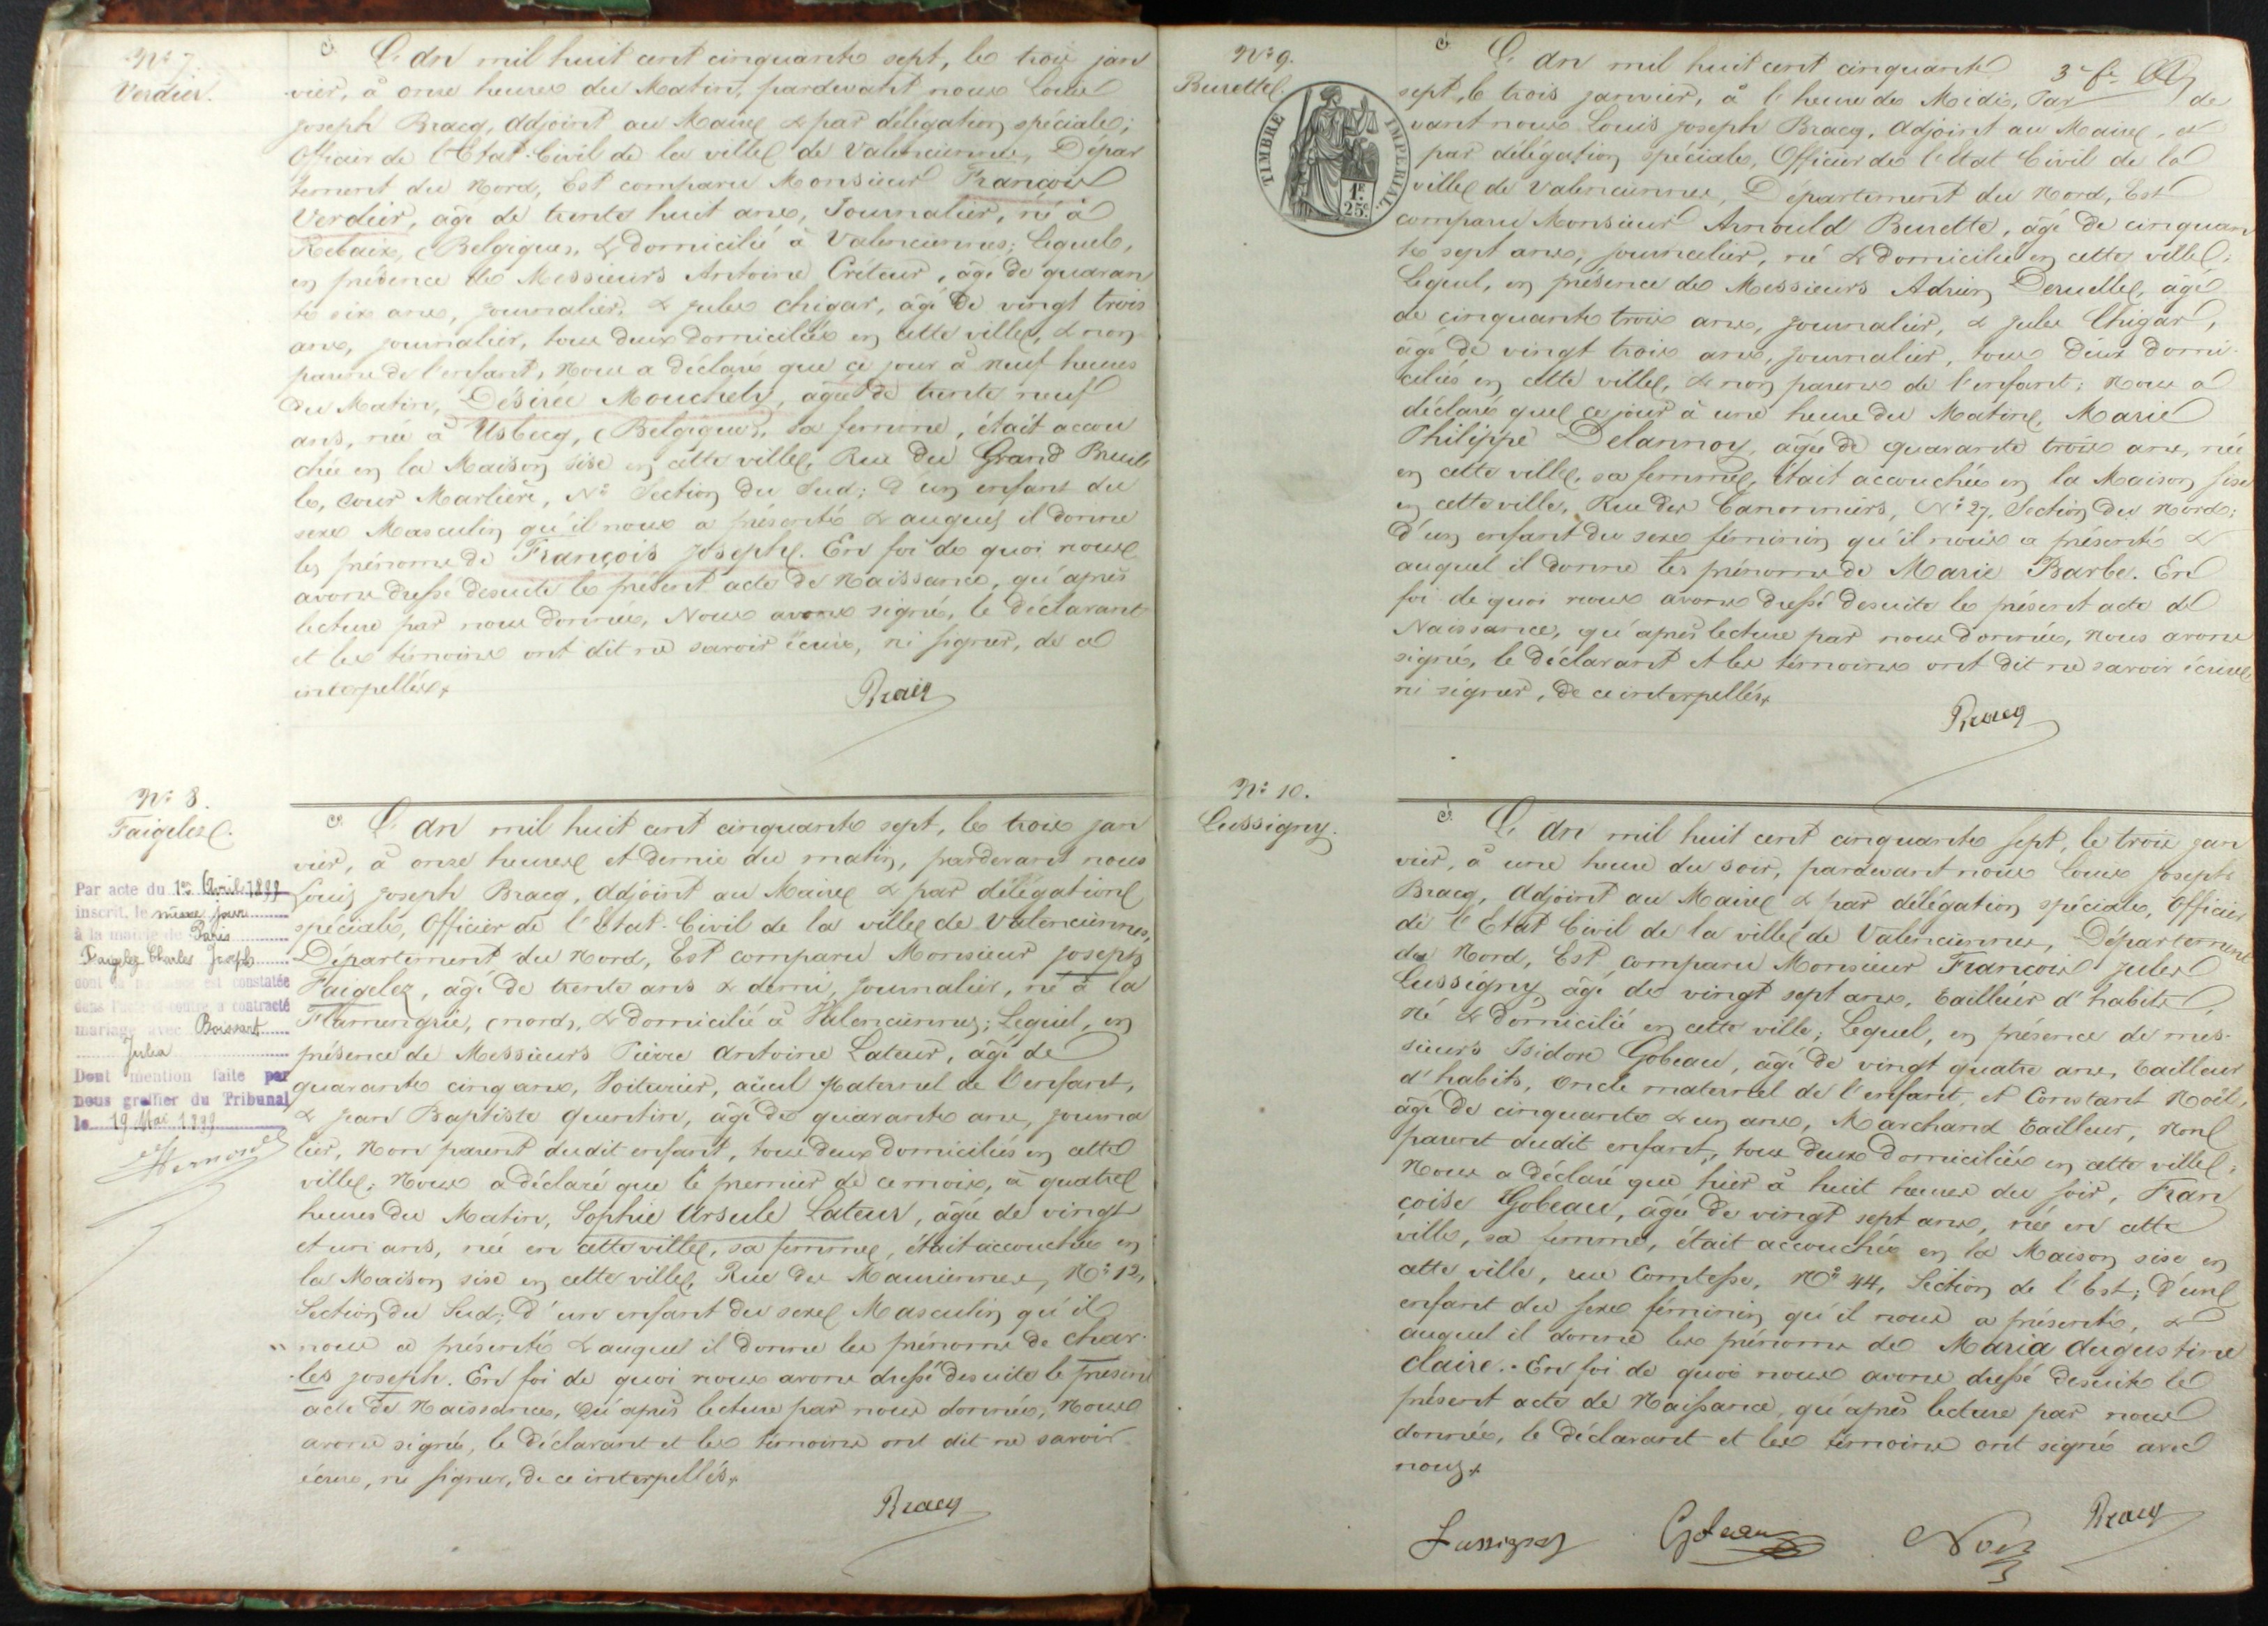 N° 7.
Verdier.
L'an mil huit cent cinquante sept, le trois jan
vier, à onze heures du Matin, pardevant nous Louis
Joseph Bracq, Adjoint au Maire & par délégation spéciale;
Officier de l'Etat-Civil de la ville de Valenciennes, Dépar
tement du Nord, Est comparu Monsieur François
Verdier, âgé de trente huit ans, Journalier, né à
Rebaix, (Belgique), & domicilié à Valenciennes; Lequel,
en présence de Messieurs Antoine Créteur, âgé de quaran
te six ans, journalier, & Jules Chigar, âgé de vingt trois
ans, journalier, tous deux domiciliés en cette ville, & non
parens de l'enfant, Nous a déclaré que ce jour à neuf heures
du Matin, Désirée Mouchely, âgée de trente neuf
ans, née à Usbecq, (Belgique), sa femme, était accou
chée en la Maison sise en cette ville, Rue du Grand Bruil
le, Cour Marlière, N° Section du Sud; d'un enfant du
sexe Masculin qu'il nous a présenté & auquel il donne
les prénoms de François Joseph. En foi de quoi nous
avons dressé desuite le présent acte de Naissance, qu'après
lecture par nous donnée, Nous avons signé, le déclarant
et les témoins ont dit ne savoir écrire, ni signer, de ce
interpellés
Bracq
N° 8.
Faigelez.
Par acte du 1er Avril 1899
inscrit, le même jour
à la mairie de Paris
Faigelez Charles Joseph
dont la naissance est constatée
dans l'acte ci-contre a contracté
mariage avec Boissart
Julia
Dont mention faite par
nous greffier du Tribunal
le 19 Mai 1899
L'an mil huit cent cinquante sept, le trois jan
vier, à onze heures et demie du matin, pardevant nous
Louis Joseph Bracq, Adjoint au Maire & par délégation
spéciale, Officier de l'Etat-Civil de la ville de Valenciennes,
Département du Nord, Est comparu Monsieur Joseph
Faigelez, âgé de trente ans & demi, Journalier, né à la
Flamengrie, (nord), & domicilié à Valenciennes; Lequel, en
présence de Messieurs Pierre Antoine Lateur, âgé de
quarante cinq ans, Voiturier, aïeul Maternel de l'enfant,
& Jean Baptiste Quentin, âgé de quarante ans, journa
lier, Non parent dudit enfant, tous deux domiciliés en cette
ville; Nous a déclaré que le premier de ce mois, à quatre
heures du Matin, Sophie Ursule Lateur, âgée de vingt
et un ans, née en cette ville, sa femme, était accouchée en
la Maison sise en cette ville, Rue des Maurienne, N° 12,
Section du Sud; d'un enfant du sexe Masculin qu'il
nous a présenté & auquel il donne les prénoms de Char-
les Joseph. En foi de quoi nous avons dressé desuite le présent
acte de Naissance, Qu'après lecture par nous donnée, Nous
avons signé, le déclarant et les témoins ont dit ne savoir
écrire, ni signer, de ce interpellés
Bracq
N° 9.
Burette
TIMBRE IMPERIAL
1F. 25c
L'an mil huit cent cinquante
sept, le trois janvier, à l'heure de Midi, Par de
vant nous Louis Joseph Bracq, Adjoint au Maire, &
par délégation spéciale, Officier de l'Etat Civil de la
ville de Valenciennes, Département du Nord, Est
comparu Monsieur Arnould Burette, âgé de cinquan
te sept ans, journalier, né & domicilié en cette ville;
Lequel, en présence de Messieurs Adrien Deruelle, âgé
de cinquante trois ans, journalier, & Jules Chigar,
âgé de vingt trois ans, journalier, tous deux domi-
ciliés en cette ville, & non parens de l'enfant; Nous a
déclaré que ce jour à une heure du Matin, Marie
Philippe Delannoy, âgée de quarante trois ans, née
en cette ville, sa femme, était accouchée en la Maison sise
en cette ville, Rue des Canonniers, N° 27, Section du Nord;
d'un enfant du sexe féminin qu'il nous a présenté &
auquel il donne les prénoms de Marie Barbe. En
foi de quoi nous avons dressé desuite le présent acte de
Naissance, qu'après lecture par nous donnée, Nous avons
signé, le déclarant et les témoins ont dit ne savoir écrire
ni signer, de ce interpellés
Bracq
N° 10.
Lussigny.
L'an mil huit cent cinquante sept, le trois jan
vier, à une heure du soir, pardevant nous Louis Joseph
Bracq, Adjoint au Maire & par délégation spéciale, Officier
de l'Etat Civil de la ville de Valenciennes, Département
du Nord, Est comparu Monsieur François Jules
Lussigny âgé de vingt sept ans, tailleur d'habits,
né & domicilié en cette ville; Lequel, en présence de mes-
sieurs Isidore Gobeau, âgé de vingt quatre ans, tailleur
d'habits, oncle maternel de l'enfant, et Constant Noël,
âgé de cinquante & un ans, Marchand tailleur, Non
parent dudit enfant, tous deux domiciliés en cette ville;
Nous a déclaré que hier à huit heures du soir, Fran
çoise Gobeau, âgée de vingt sept ans, née en cette
ville, sa femme, était accouchée en la Maison sise en
cette ville, rue Comtesse, N° 44, Section de l'Est; d'un
enfant du sexe féminin qu'il nous a présenté, &
auquel il donne les prénoms de Maria Augustine
Claire. En foi de quoi nous avons dressé desuite le
présent acte de Naissance, qu'après lecture par nous
donnée, le déclarant et les témoins ont signé avec
nous
Lussigny Gobeau Noël Bracq